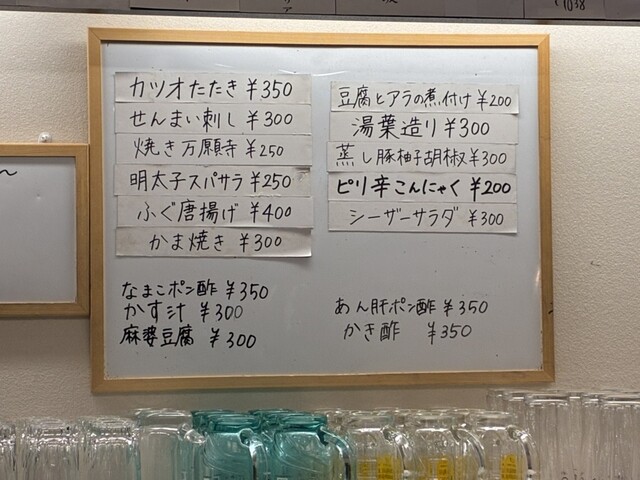 カツオたたき ¥350
せんまい刺し ¥300
焼き万願寺 ¥250
明太子スパサラ ¥250
ふぐ唐揚げ ¥400
かま焼き ¥300
なまこポン酢 ¥350
かす汁 ¥300
麻婆豆腐 ¥300
豆腐とアラの煮付け ¥200
湯葉造り ¥300
蒸し豚柚子胡椒 ¥300
ピリ辛こんにゃく ¥200
シーザーサラダ ¥300
あん肝ポン酢 ¥350
かき酢 ¥350